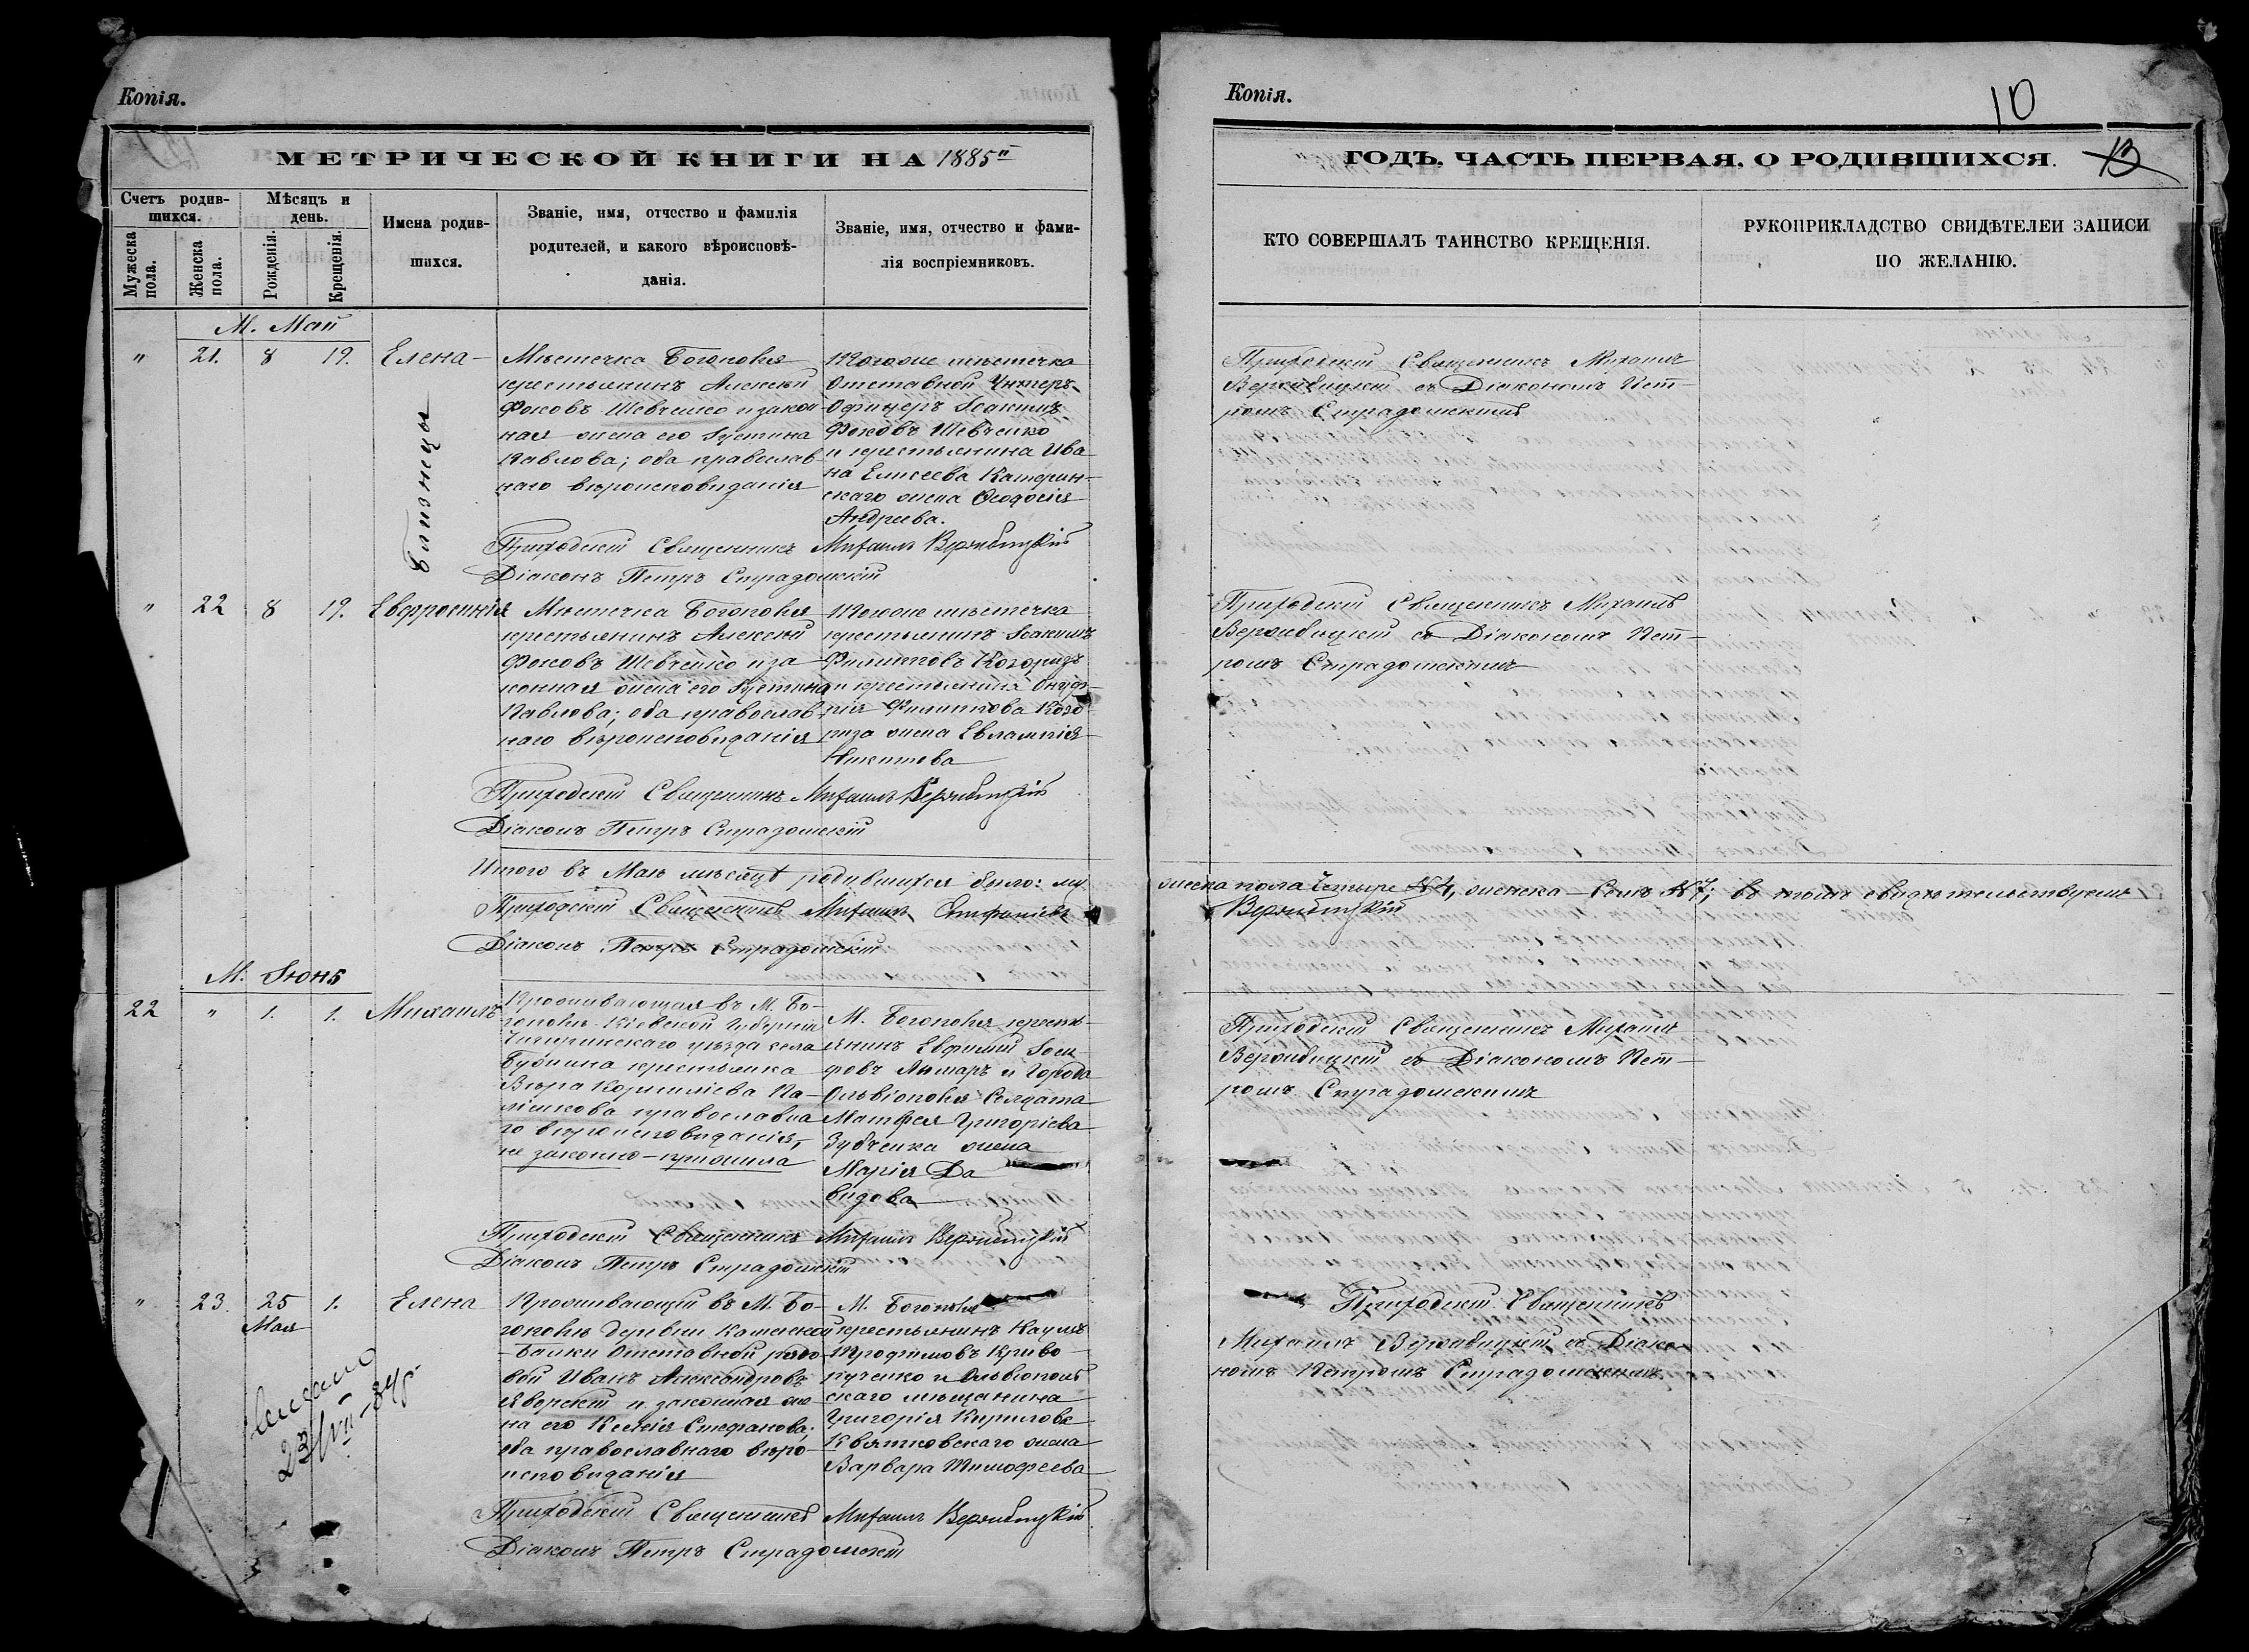 Копія.
МЕТРИЧЕСКОЙ КНИГИ НА 1885й
Счетъ родив-
шихся.
Мѣсяцъ и
день.
Мужеска
пола.
Женска
пола.
Рожденія.
Крещенія.
Имена родив-
шихся.
Званіе, имя, отчество и фамилія
родителей, и какого вѣроисповѣ-
данія.
Званіе, имя, отчество и фами-
лія воспріемниковъ.
М. Май
" 21. 8 19. Елена
Близнецы
Мѣстечка Богополя
крестьянинъ Алексѣй
Фоковъ Шевченко и закон
ная жена его Іустина
Павлова; оба православ
наго вѣроисповѣданія
Тогоже мѣстечка
отставной Унтеръ-
Офицеръ Іоакимъ
Фоковъ Шевченко
и крестьянина Ива
на Елисеева Катерин-
скаго жена Ѳеодосія
Андреева.
Приходскій Священникъ Михаилъ Вержбицкій
Діаконъ Петръ Страдомскій
" 22 8 19. Евфросинія
Мѣстечка Богополя
крестьянинъ Алексѣй
Фоковъ Шевченко и за
конная жена его Іустина
Павлова; оба православ
наго вѣроисповѣданія
Тогоже мѣстечка
крестьянинъ Іоакимъ
Филипповъ Когоризъ
и крестьянина Онуф-
рія Филиппова Кого
риза жена Евлампія
Никитова
Приходскій Священникъ Михаилъ Вержбицкій
Діаконъ Петръ Страдомскій
Итого въ Маѣ мѣсяцѣ родившихся было: му
Приходскій Священникъ Михаилъ Стефаніевъ
Діаконъ Петръ Страдомскій
М. Іюнь
22 " 1. 1. Михаилъ
Проживающая въ М. Бо-
гополѣ Кіевской Губерніи
Чигиринскаго уѣзда села
крестьянка
Вѣра Корниліева Па-
лѣшкова православна
го вѣроисповѣданія,
не законно-прижила
М. Богополя кресть-
янинъ Евфимій Іоси
фовъ Лымаръ и Города
Ольвіополя Солдата
Матфея Григоріева
Зубченка жена
Марія Да
видова
Приходскій Священникъ Михаилъ Вержбицкій
Діаконъ Петръ Страдомскій
" 23. 25 1. Елена
Мая
23/VII-
Проживающій въ М. Бо-
гополѣ деревни Каменной
Балки Отставной рядо
вой Иванъ Александровъ
Яворскій и законная же
на его Ксенія Стефанова;
оба православнаго вѣро-
исповѣданія
М. Богополя
крестьянинъ Наумъ
Трофимовъ Криво
рученко и Ольвіополь
скаго мѣщанина
Григорія Кирилова
Квятковскаго жена
Варвара Тимофеева
Приходскій Священникъ Михаилъ Вержбицкій
Діаконъ Петръ Страдомскій
Копія.
10
ГОДЪ, ЧАСТЬ ПЕРВАЯ, О РОДИВШИХСЯ.
13
КТО СОВЕРШАЛЪ ТАИНСТВО КРЕЩЕНІЯ.
РУКОПРИКЛАДСТВО СВИДѢТЕЛЕЙ ЗАПИСИ
ПО ЖЕЛАНІЮ.
Приходскій Священникъ Михаилъ
Вержбицкій съ Діакономъ Пет-
ромъ Страдомскимъ
Приходскій Священникъ Михаилъ
Вержбицкій съ Діакономъ Пет-
ромъ Страдомскимъ
жеска пола Четыре №4, женска - Семь №7; въ томъ свидѣтельствуемъ
Вержбицкій
Приходскій Священникъ Михаилъ
Вержбицкій съ Діакономъ Пет-
ромъ Страдомскимъ
Приходскій Священникъ
Михаилъ Вержбицкій съ Діако-
номъ Петромъ Страдомскимъ